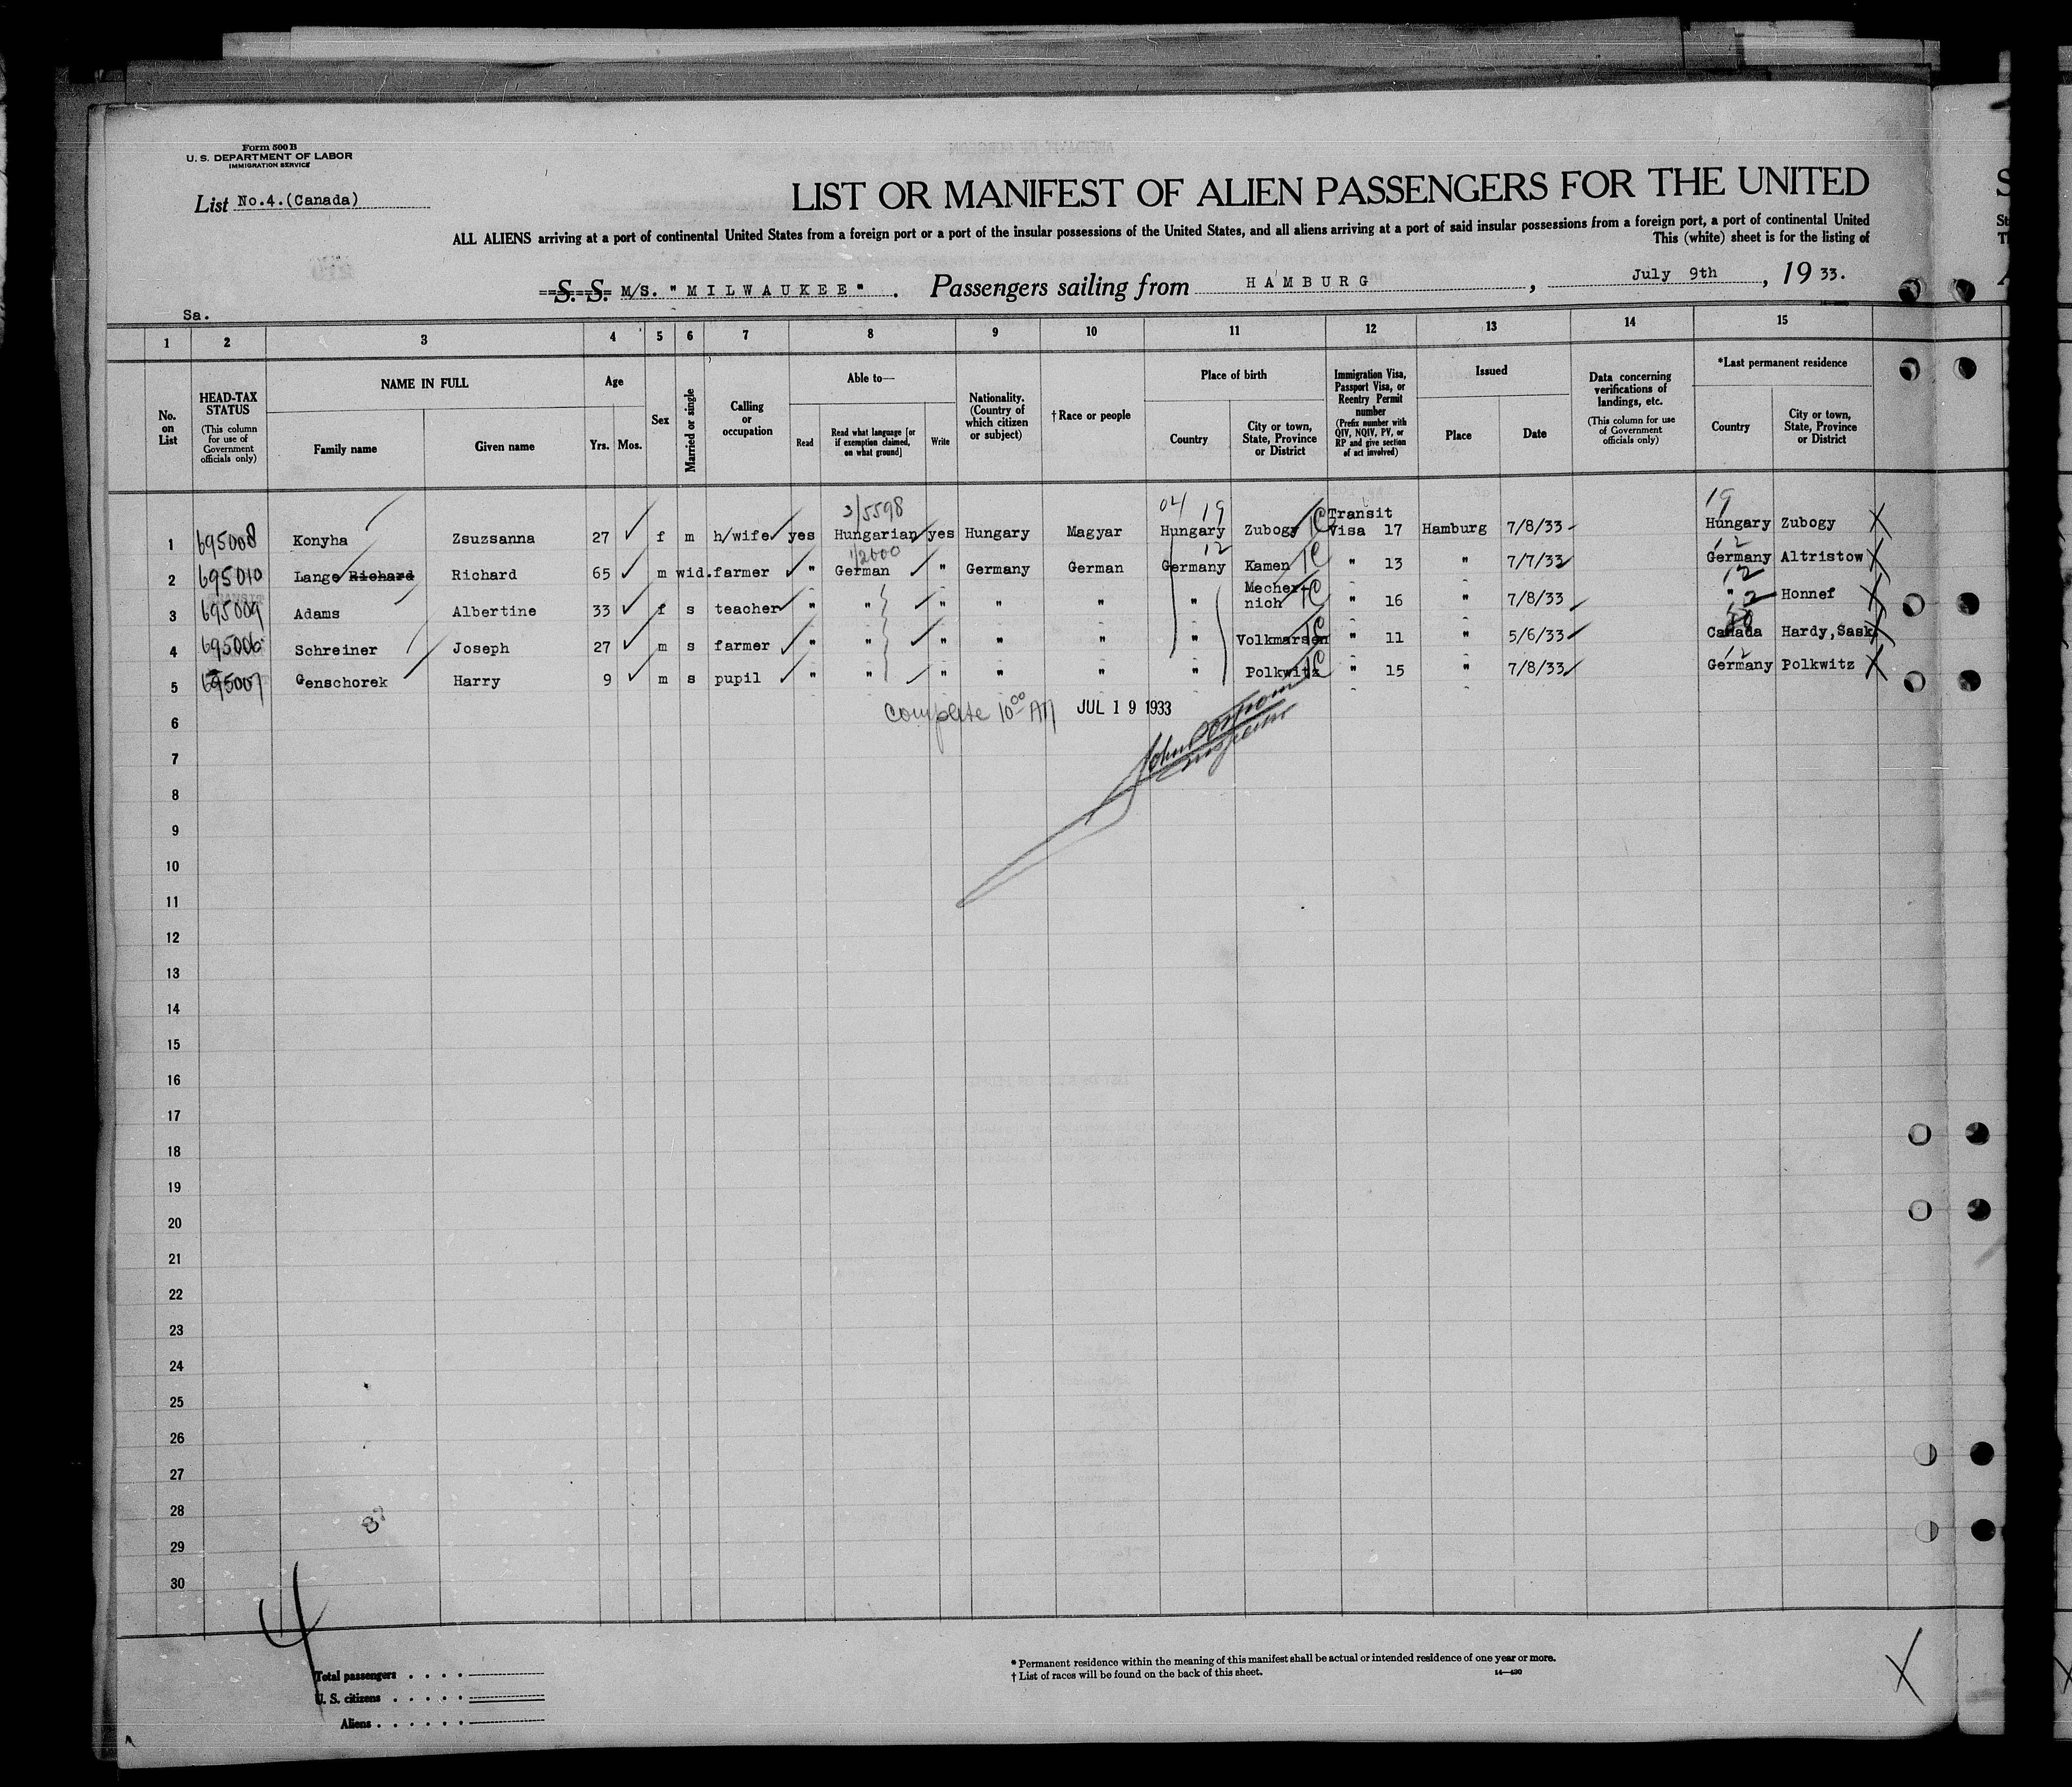 Form 500 B
U. S. DEPARTMENT OF LABOR
IMMIGRATION SERVICE
List No.4.(Canada)
LIST OR MANIFEST OF ALIEN PASSENGERS FOR THE UNITED
ALL ALIENS arriving at a port of continental United States from a foreign port or a port of the insular possessions of the United States, and all aliens arriving at a port of said insular possessions from a foreign port, a port of continental United
This (white) sheet is for the listing of
S. S. M/S. "MILWAUKEE". Passengers sailing from HAMBURG, July 9th, 1933.
Sa.
1 2 3 4 5 6 7 8 9 10 11 12 13 14 15
No. on List
HEAD-TAX STATUS
(This column for use of Government officials only)
NAME IN FULL
Family name Given name
Age
Yrs. Mos.
Sex
Married or single
Calling or occupation
Able to—
Read Read what language [or if exemption claimed, on what ground] Write
Nationality. (Country of which citizen or subject)
†Race or people
Place of birth
Country City or town, State, Province or District
Immigration Visa, Passport Visa, or Reentry Permit number
(Prefix number with QIV, NQIV, PV, or RP and give section of act involved)
Issued
Place Date
Data concerning verifications of landings, etc.
(This column for use of Government officials only)
*Last permanent residence
Country City or town, State, Province or District
3/5598 04 19 Transit 19
1 695008 Konyha Zsuzsanna 27 f m h/wife yes Hungarian yes Hungary Magyar Hungary Zubogy Visa 17 Hamburg 7/8/33 Hungary Zubogy
1/2000 12 12
2 695010 Lange Richard Richard 65 m wid. farmer " German " Germany German Germany Kamen " 13 " 7/7/33 Germany Altristow
12
3 695009 Adams Albertine 33 f s teacher " " " " " " Mechernich " 16 " 7/8/33 " Honnef
4 695006 Schreiner Joseph 27 m s farmer " " " " " " Volkmarsen " 11 " 5/6/33 Canada Hardy,Sask
12
5 695007 Genschorek Harry 9 m s pupil " " " " " " Polkwitz " 15 " 7/8/33 Germany Polkwitz
6 Complete 10 00 AM JUL 19 1933
7
8
9
10
11
12
13
14
15
16
17
18
19
20
21
22
23
24
25
26
27
28
29
30
4
Total passengers
U. S. citizens
Aliens
* Permanent residence within the meaning of this manifest shall be actual or intended residence of one year or more.
† List of races will be found on the back of this sheet.
14—490